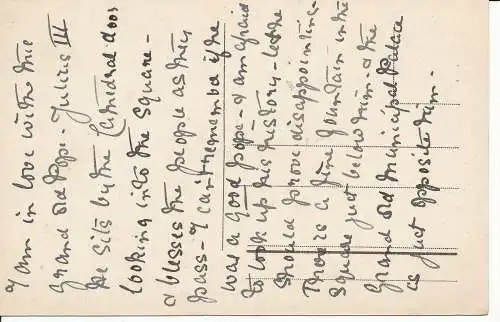 I am in love with this
Grand old Pope - Julius III
he sits by the Cathedral door
looking into the square -
& blesses the people as they
pass - I can't remember if he
was a good Pope - & am afraid
to look up his history - lest he
should prove disappointing -
There is a fine fountain in the
square just below him - & the
Grand old Municipal Palace
is just opposite him -